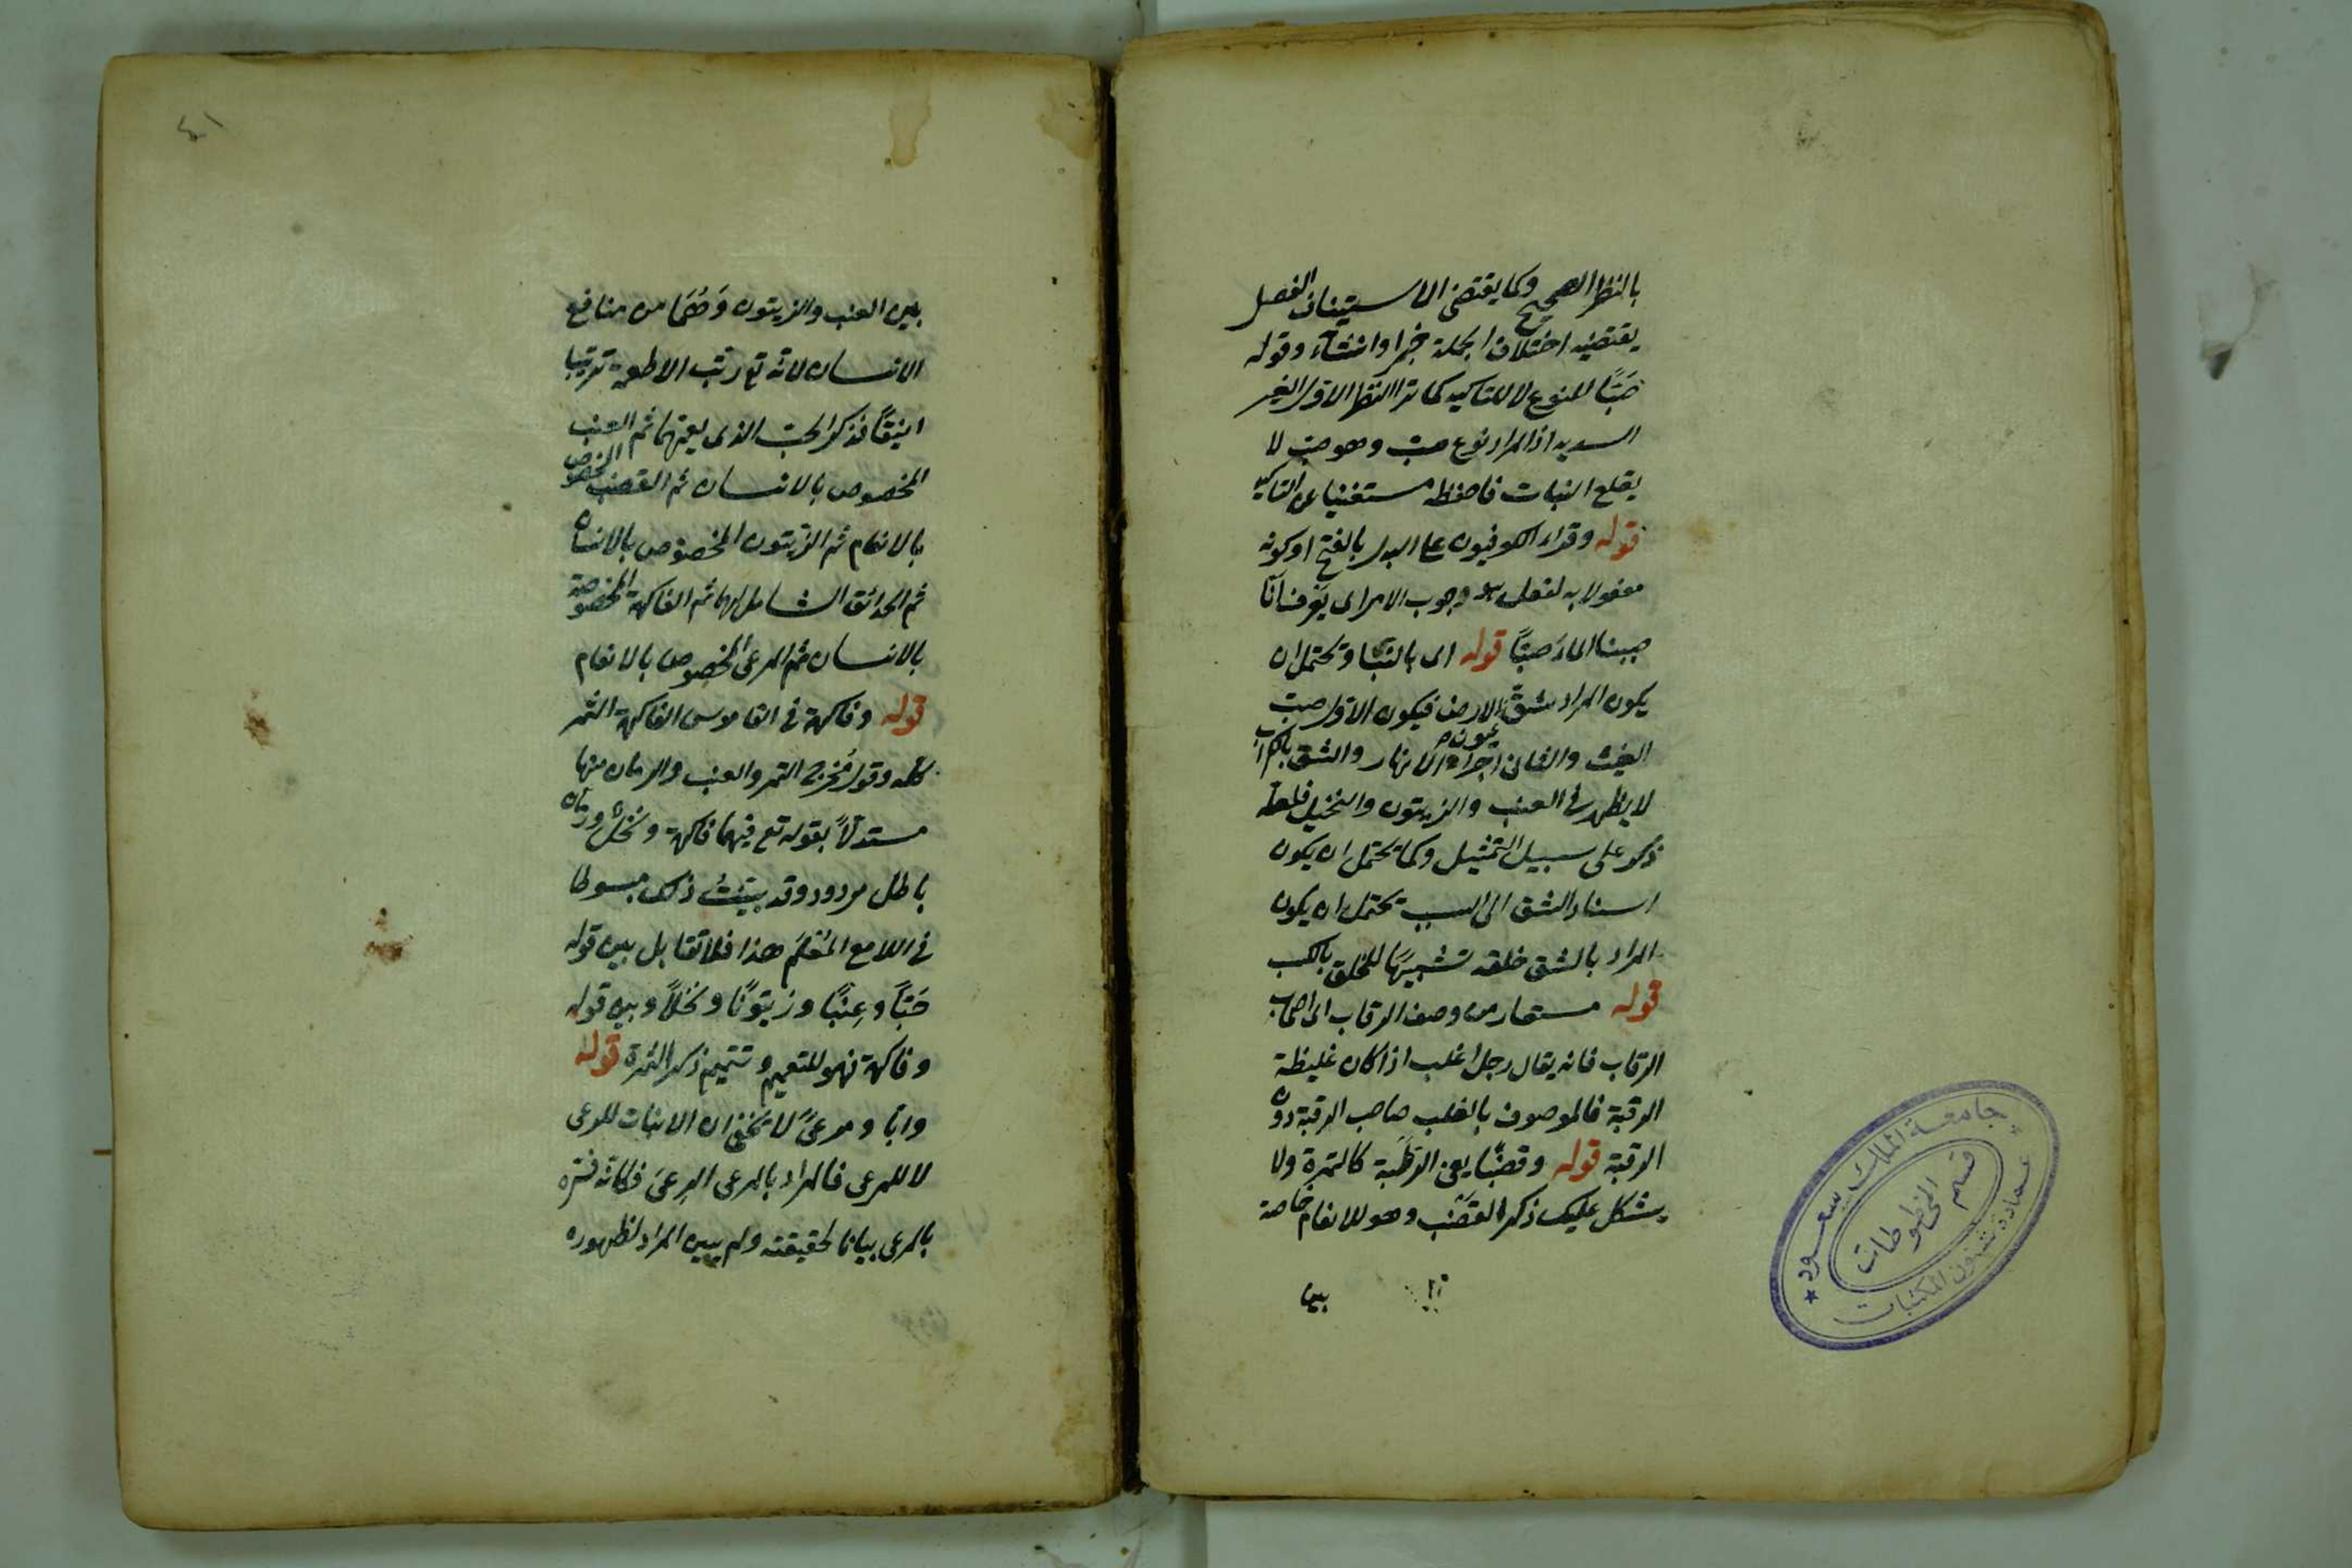 بالنظر الصحيح وكما يقتضى الاستيناف الفصل
يقتضيه اختلاف الجملة خبرا وانشاء وقوله
صَبًّا للنوع لا للتاكيد كما ترا النظر الاول الغير
السديد اذ المراد نوع صب وهو صب لا
يقلع النبات فاحفظه مستغنيا عن التاكيد
قوله وقراء الكوفيون على البدل بالفتح او كونه
مفعولا به لفعل وجوب الامر اى
صببنا الماء صَبًّا قوله اى بالنبات ويحتمل ان
يكون المراد شقّ الارض فيكون الاول صب
الغيث والثانى اجراء عيون الانهار والشق بالكراب
لا يظهر فى العنب والزيتون والنخيل فلعله
ذكر على سبيل التمثيل وكما يحتمل ان يكون
اسناد الشق الى السبب يحتمل ان يكون
المراد بالشق خلقه تشبيهًا للخلق بالكسب
قوله مستعار من وصف الرقاب اى اصحاب
الرقاب فانه يقال رجل اغلب اذا كان غليظة
الرقبة فالموصوف بالغلب صاحب الرقبة دون
الرقبة قوله وقضبًا يعنى الرَطْبَة كالتمرة ولا
يشكل عليك ذكر القَضْب وهو للانعام خاصة
بين
٤١
بين العنب والزيتون وَهُمَا من منافع
الانسان لانه تع رتّب الاطعمة ترتيبا
انيقًا فذكر الحبّ الذى يعمّهما ثم العنب
المخصوص بالانسان ثم القضب المخصوص
بالانعام ثم الزيتون المخصوص بالانسان
ثم الحدائق الشامل لهما ثم الفاكهة المخصوصة
بالانسان ثم المرعى المخصوص بالانعام
قوله وفاكهة فى القاموس الفاكهة الثمر
كله وقول مُخرِج التمر والعنب والرمان منها
مستدلاً بقوله تع فيهما فاكهة ونخل ورمان
باطل مردود وقد بيّنتُ ذلك مبسوطا
فى اللامع المُعْلَم هذا فلا تقابل بين قوله
حَبًّا وعِنَبًا وزيتونًا ونخلاً وبين قوله
وفاكهة فهو للتعميم وتتميم ذكر الثمرة قوله
وابّا ومرعىً لا يخفى ان الانبات للرعى
لا للمرعى فالمراد بالمرعى الرِعىَ فكانّه فسّره
بالمرعى بيانا لحقيقته ولم يبين المراد لظهوره
جامعة الملك سعود
قسم المخطوطات
عمادة شئون المكتبات